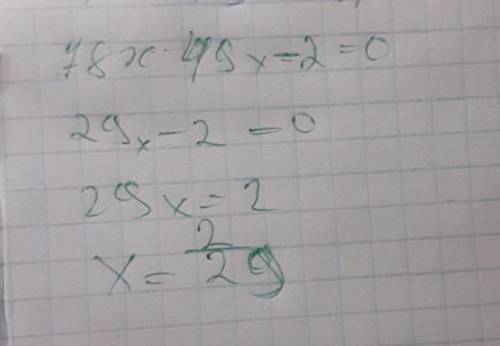 78x · 49x - 2 = 0
29x - 2 = 0
29x = 2
x = 2/29